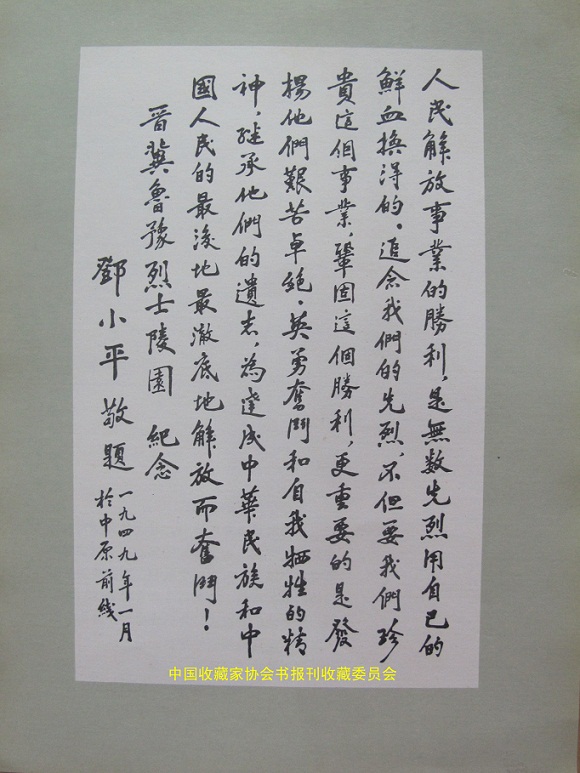 人民解放事業的勝利，是無数先烈用自己的
鮮血換淂的。追念我們的先烈，不但要我們珍
貴這個事業，鞏固這個勝利，更重要的是發
揚他們艱苦卓絕、英勇奮鬥和自我牺牲的精
神，继承他們的遺志，為達成中華民族和中
國人民的最後地最澈底地解放而奮鬥！
晋冀魯豫烈士陵園 紀念
鄧小平敬題
一九四九年一月
於中原前线
中国收藏家协会书报刊收藏委员会